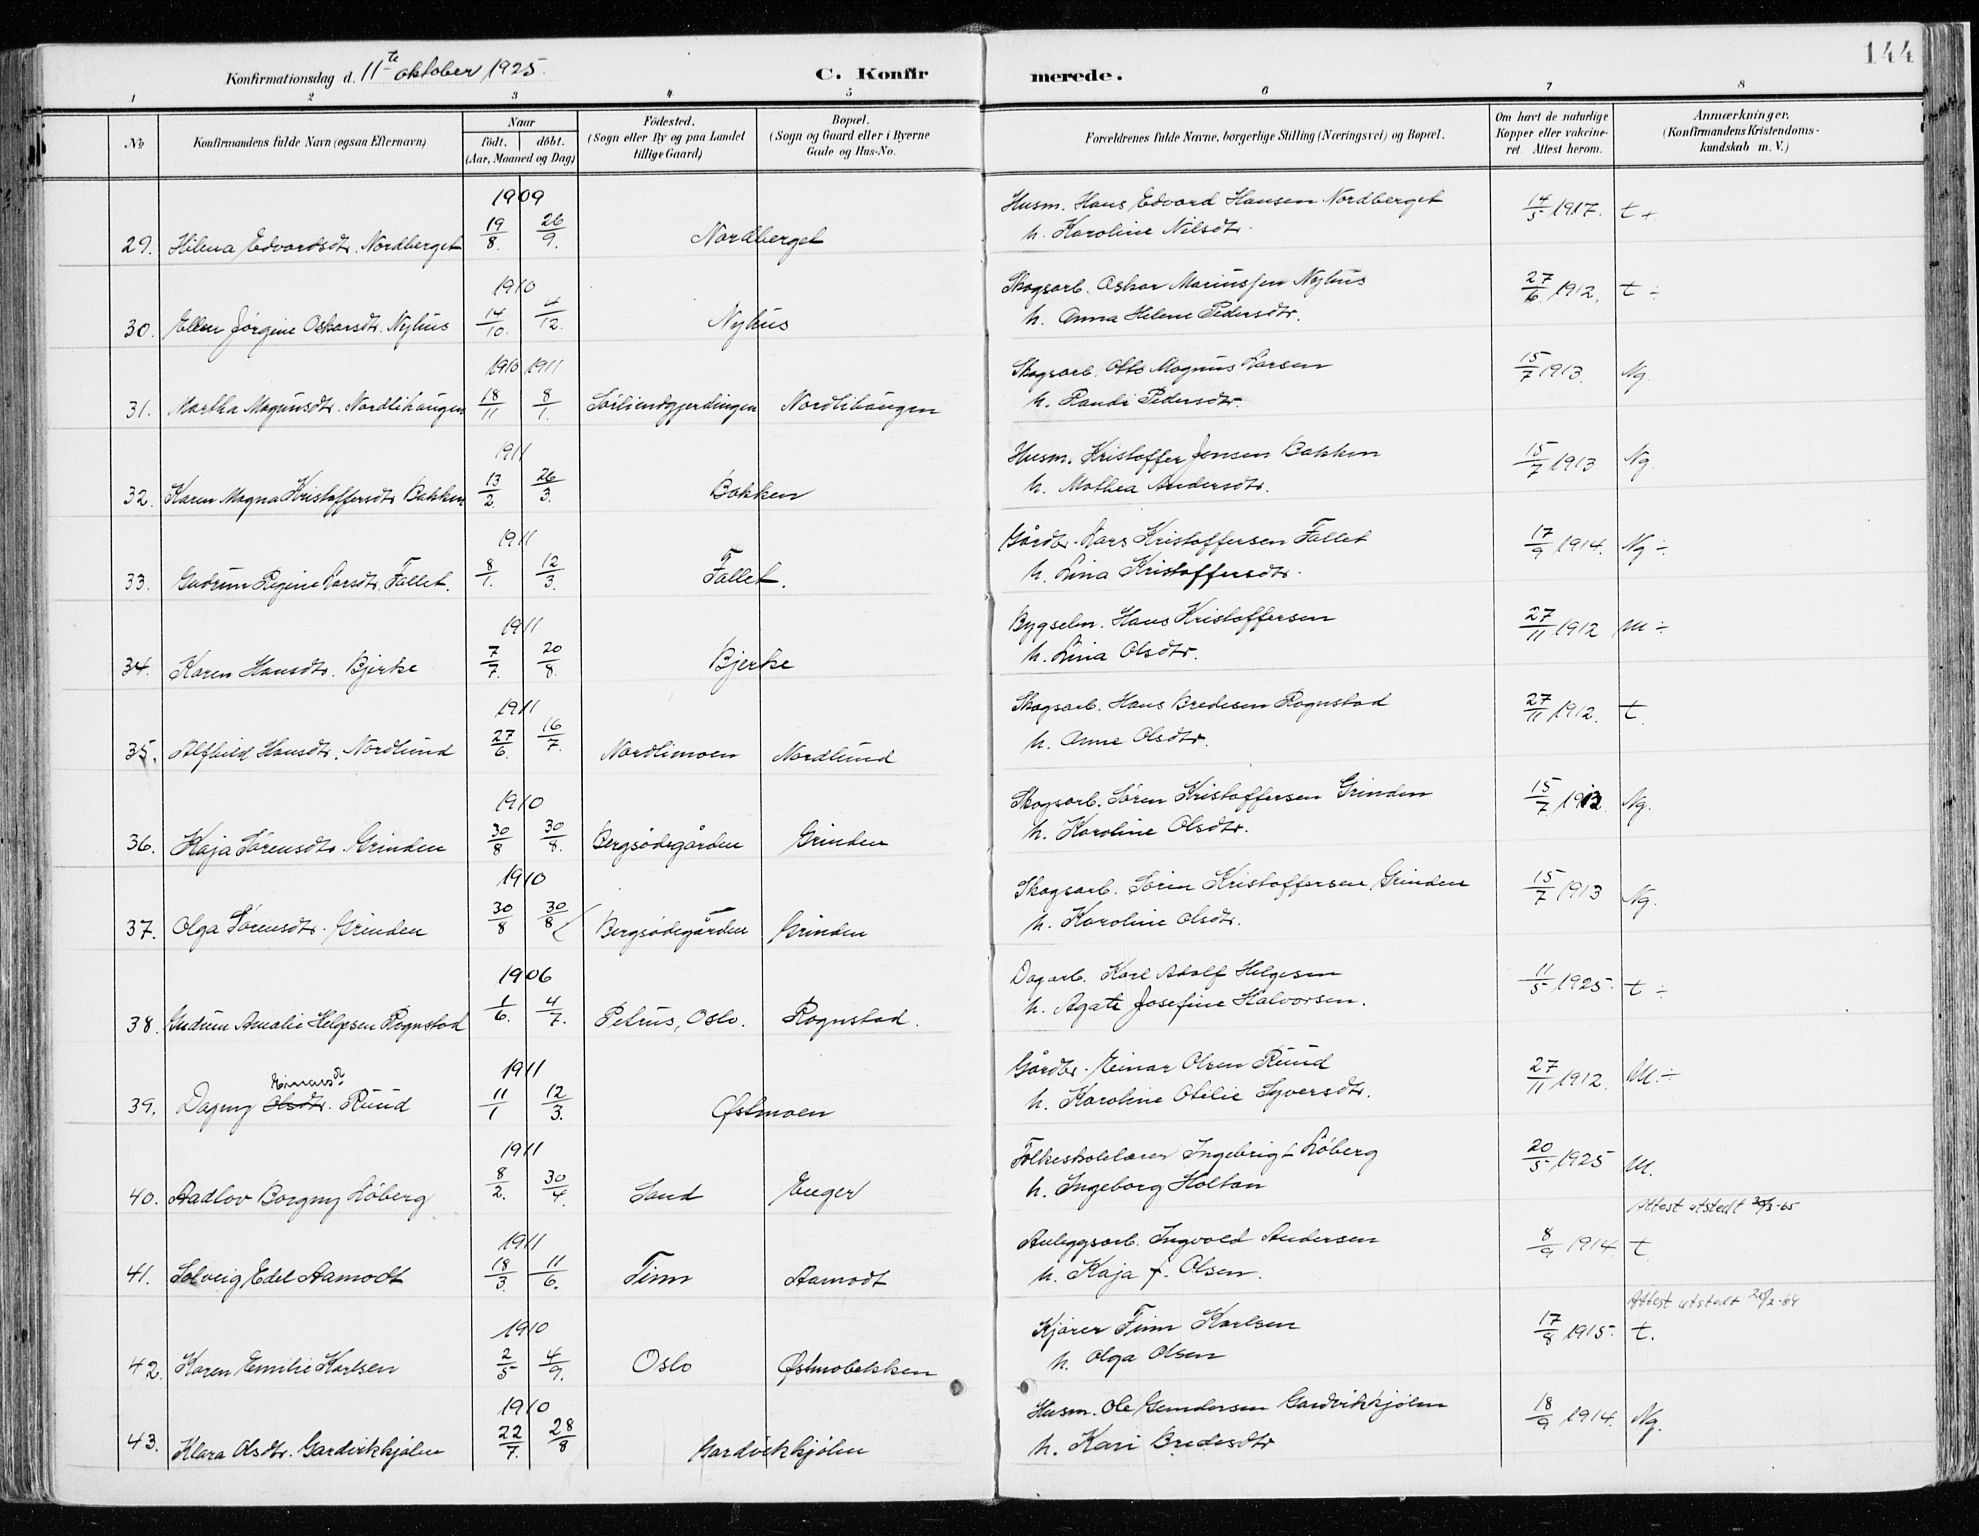 144
Konfirmationsdag d. 11te oktober 1925.
C. Konfirmerede.
1 2 3 4 5 6 7 8
No
Konfirmandens fulde Navn (ogsaa Efternavn)
Naar
født. døbt.
(Aar, Maaned og Dag)
Fødested.
(Sogn eller By og paa Landet
tillige Gaard)
Bopæl.
(Sogn og Gaard eller i Byerne
Gade og Hus-No.
Forældrenes fulde Navne, borgerlige Stilling (Næringsvei) og Bopæl.
Om havt de naturlige
Kopper eller vakcine-
ret. Attest herom.
Anmærkninger.
(Konfirmandens Kristendoms-
kundskab m. V.)
1909
29. Hilma Edvardsdtr. Nordberget 19/8 26/9. Nordberget
Husm. Hans Edvard Hansen Nordberget 14/5 1917. t +
h. Karoline Nilsdtr.
1910
30. Ellen Jørgine Oskarsdtr. Nyhus 14/10. 4/12. Nyhus
Skogsarb. Oskar Mariussen Nyhus 27/6 1912. t ÷
h. Anna Helene Pedersdtr.
1910 1911
31. Martha Magnusdtr. Nordlihaugen 18/11 8/1. Sørliendgjerdingen Nordlihaugen
Skogsarb. Otto Magnus Larsen 15/7 1913. Ng.
h. Randi Pedersdtr.
1911
32. Karen Magna Kristoffersdtr Bakken 13/2. 26/3. Bakken
Husm. Kristoffer Jensen Bakken 15/7 1913 Ng.
h. Mathea Andersdtr.
1911
33. Gudrun Regine Larsdtr. Fallet. 8/1. 12/3. Fallet.
Gårdbr. Lars Kristoffersen Fallet 17/9 1914. Ng ÷
h. Lina Kristoffersdtr.
1911
34. Karen Hansdtr. Bjerke 7/7. 20/8. Bjerke
Bygselm. Hans Kristoffersen 27/11 1912 M ÷
h. Lina Olsdtr.
1911
35. Alfhild Hansdtr. Nordlund 27/6. 16/7. Nordlimoen Nordlund
Skogsarb. Hans Bredesen Rognstad 27/11 1912. t.
h. Anne Olsdtr.
1910
36. Kaja Sørensdtr. Grinden 30/8 30/8. Bergsødegården Grinden
Skogsarb. Søren Kristoffersen Grinden 15/7 1913 Ng.
h. Karoline Olsdtr.
1910
37. Olga Sørensdtr. Grinden 30/8 30/8 Bergsødegården Grinden
Skogsarb. Søren Kristoffersen Grinden 15/7 1913 Ng.
h. Karoline Olsdtr.
1906
38. Gudrun Amalie Helgesen Rognstad 1/6. 4/7. Petrus, Oslo. Rognstad.
Dagarb. Karl Adolf Helgesen 11/5 1925. t ÷
h. Agate Josefine Halvorsen.
1911
Einarsdtr.
39. Dagny Olsdtr. Ruud 11/1 12/3. Østmoen
Gårdbr. Einar Olsen Ruud 27/11 1912. M. ÷
h. Karoline Otilie Syversdtr.
1911
40. Aadlov Borgny Løberg 8/2. 30/4. Sand Enger
Folkeskolelærer Ingebrigt Løberg 20/5 1925 M.
h. Ingeborg Holtan
Attest utstedt 30/3-65
1911
41. Solveig Edel Aamodt 18/3. 11/6. Tinn Aamodt
Anleggsarb. Ingvald Andersen 8/9 1914. t.
h. Kaja f. Olsen.
Attest utstedt 20/2-64
1910
42. Karen Emilie Karlsen 2/5 4/9. Oslo Østmobekken
Kjører Finn Karlsen 17/8 1915. t.
h. Olga Olsen
1910
43. Klara Olsdtr. Gardvikkjølen 22/7. 28/8 Gardvikkjølen
Husm. Ole Gundersen Gardvikkjølen 18/9 1914. Ng.
h. Kari Bredesdtr